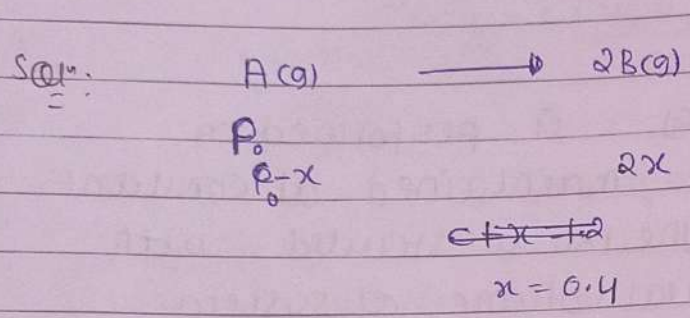 Soln: A(g) ⟶ 2B(g)
P₀
P₀-x 2x
x = 0.4